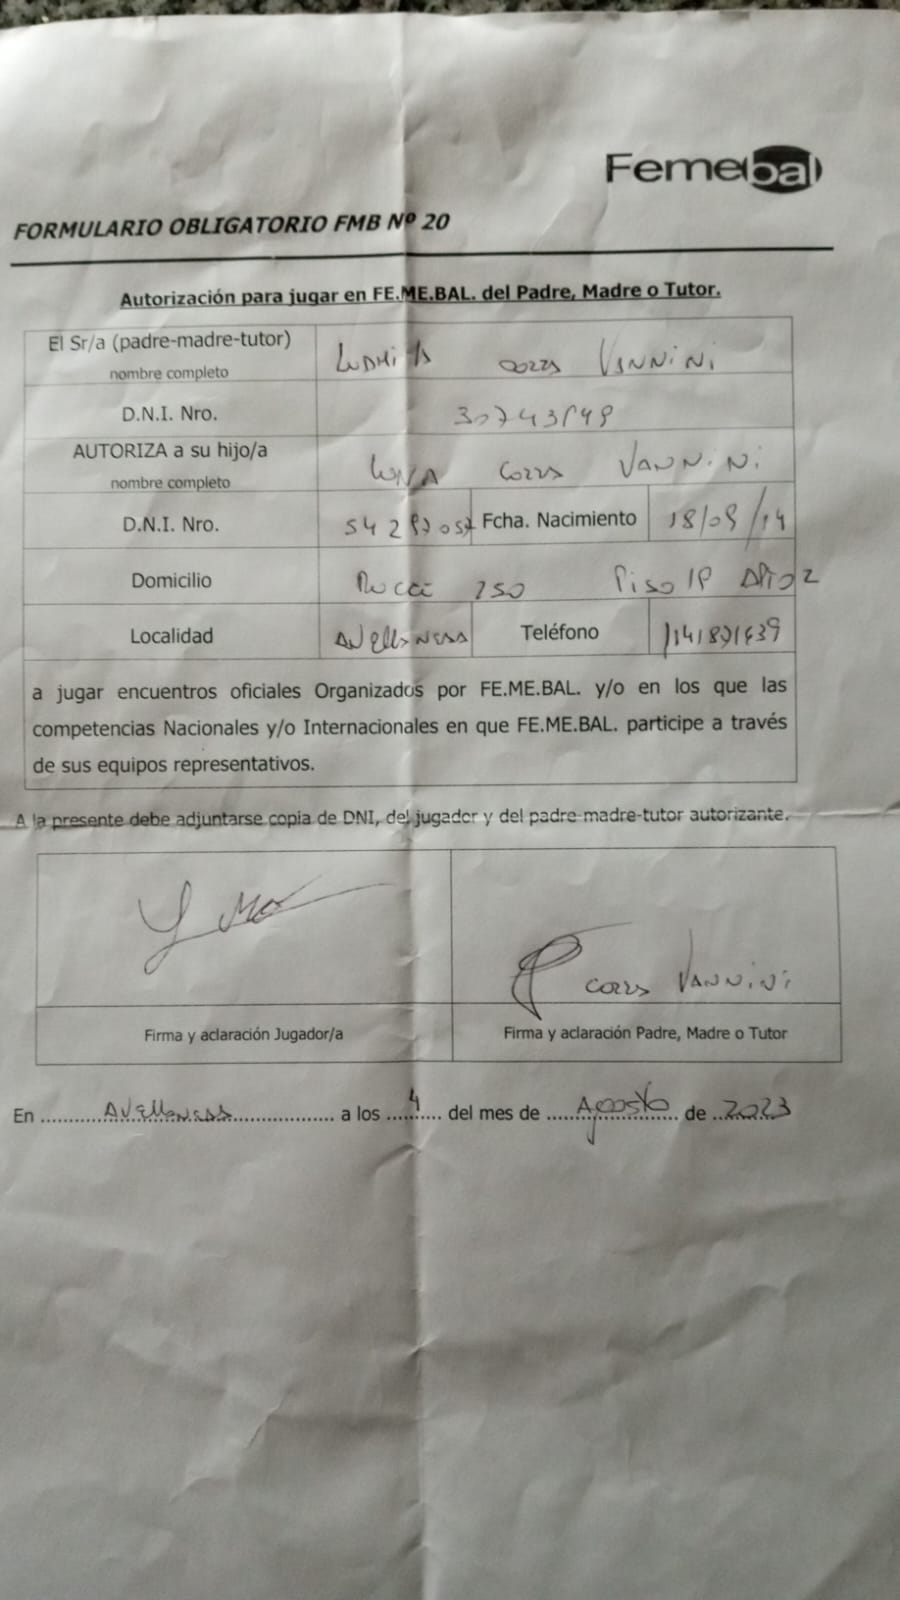 Femebal
FORMULARIO OBLIGATORIO FMB Nº 20
Autorización para jugar en FE.ME.BAL. del Padre, Madre o Tutor.
El Sr/a (padre-madre-tutor)
nombre completo
VANNiNi
D.N.I. Nro.
AUTORIZA a su hijo/a
nombre completo
LUNA VANNiNi
D.N.I. Nro. Fcha. Nacimiento
Domicilio Piso
Localidad AVellaNeda Teléfono
a jugar encuentros oficiales Organizados por FE.ME.BAL. y/o en los que las
competencias Nacionales y/o Internacionales en que FE.ME.BAL. participe a través
de sus equipos representativos.
A la presente debe adjuntarse copia de DNI, del jugador y del padre-madre-tutor autorizante.
VANNiNi
Firma y aclaración Jugador/a Firma y aclaración Padre, Madre o Tutor
En AVellaNeda a los 4 del mes de Agosto de 2023